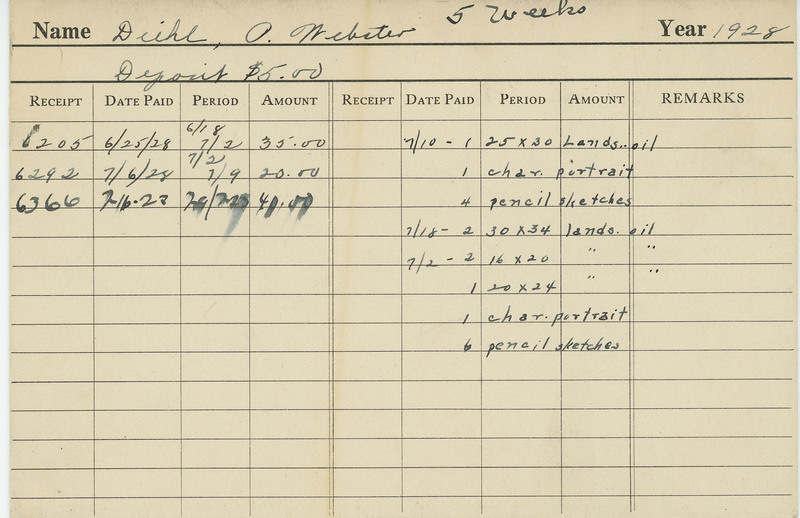 5 Weeks
Name Diehl, O. Webster Year 1928
Deposit $5.00
RECEIPT DATE PAID PERIOD AMOUNT RECEIPT DATE PAID PERIOD AMOUNT REMARKS
6/18
6205 6/25/28 7/2 35.00 7/10 - 1 25 x 30 Lands. oil
7/2
6292 7/6/28 7/9 20.00 1 char. portrait
6366 40.00 4 pencil sketches
7/18 - 2 30 x 34 lands. oil
7/2 - 2 16 x 20 " "
1 20 x 24 " "
1 char. portrait
6 pencil sketches